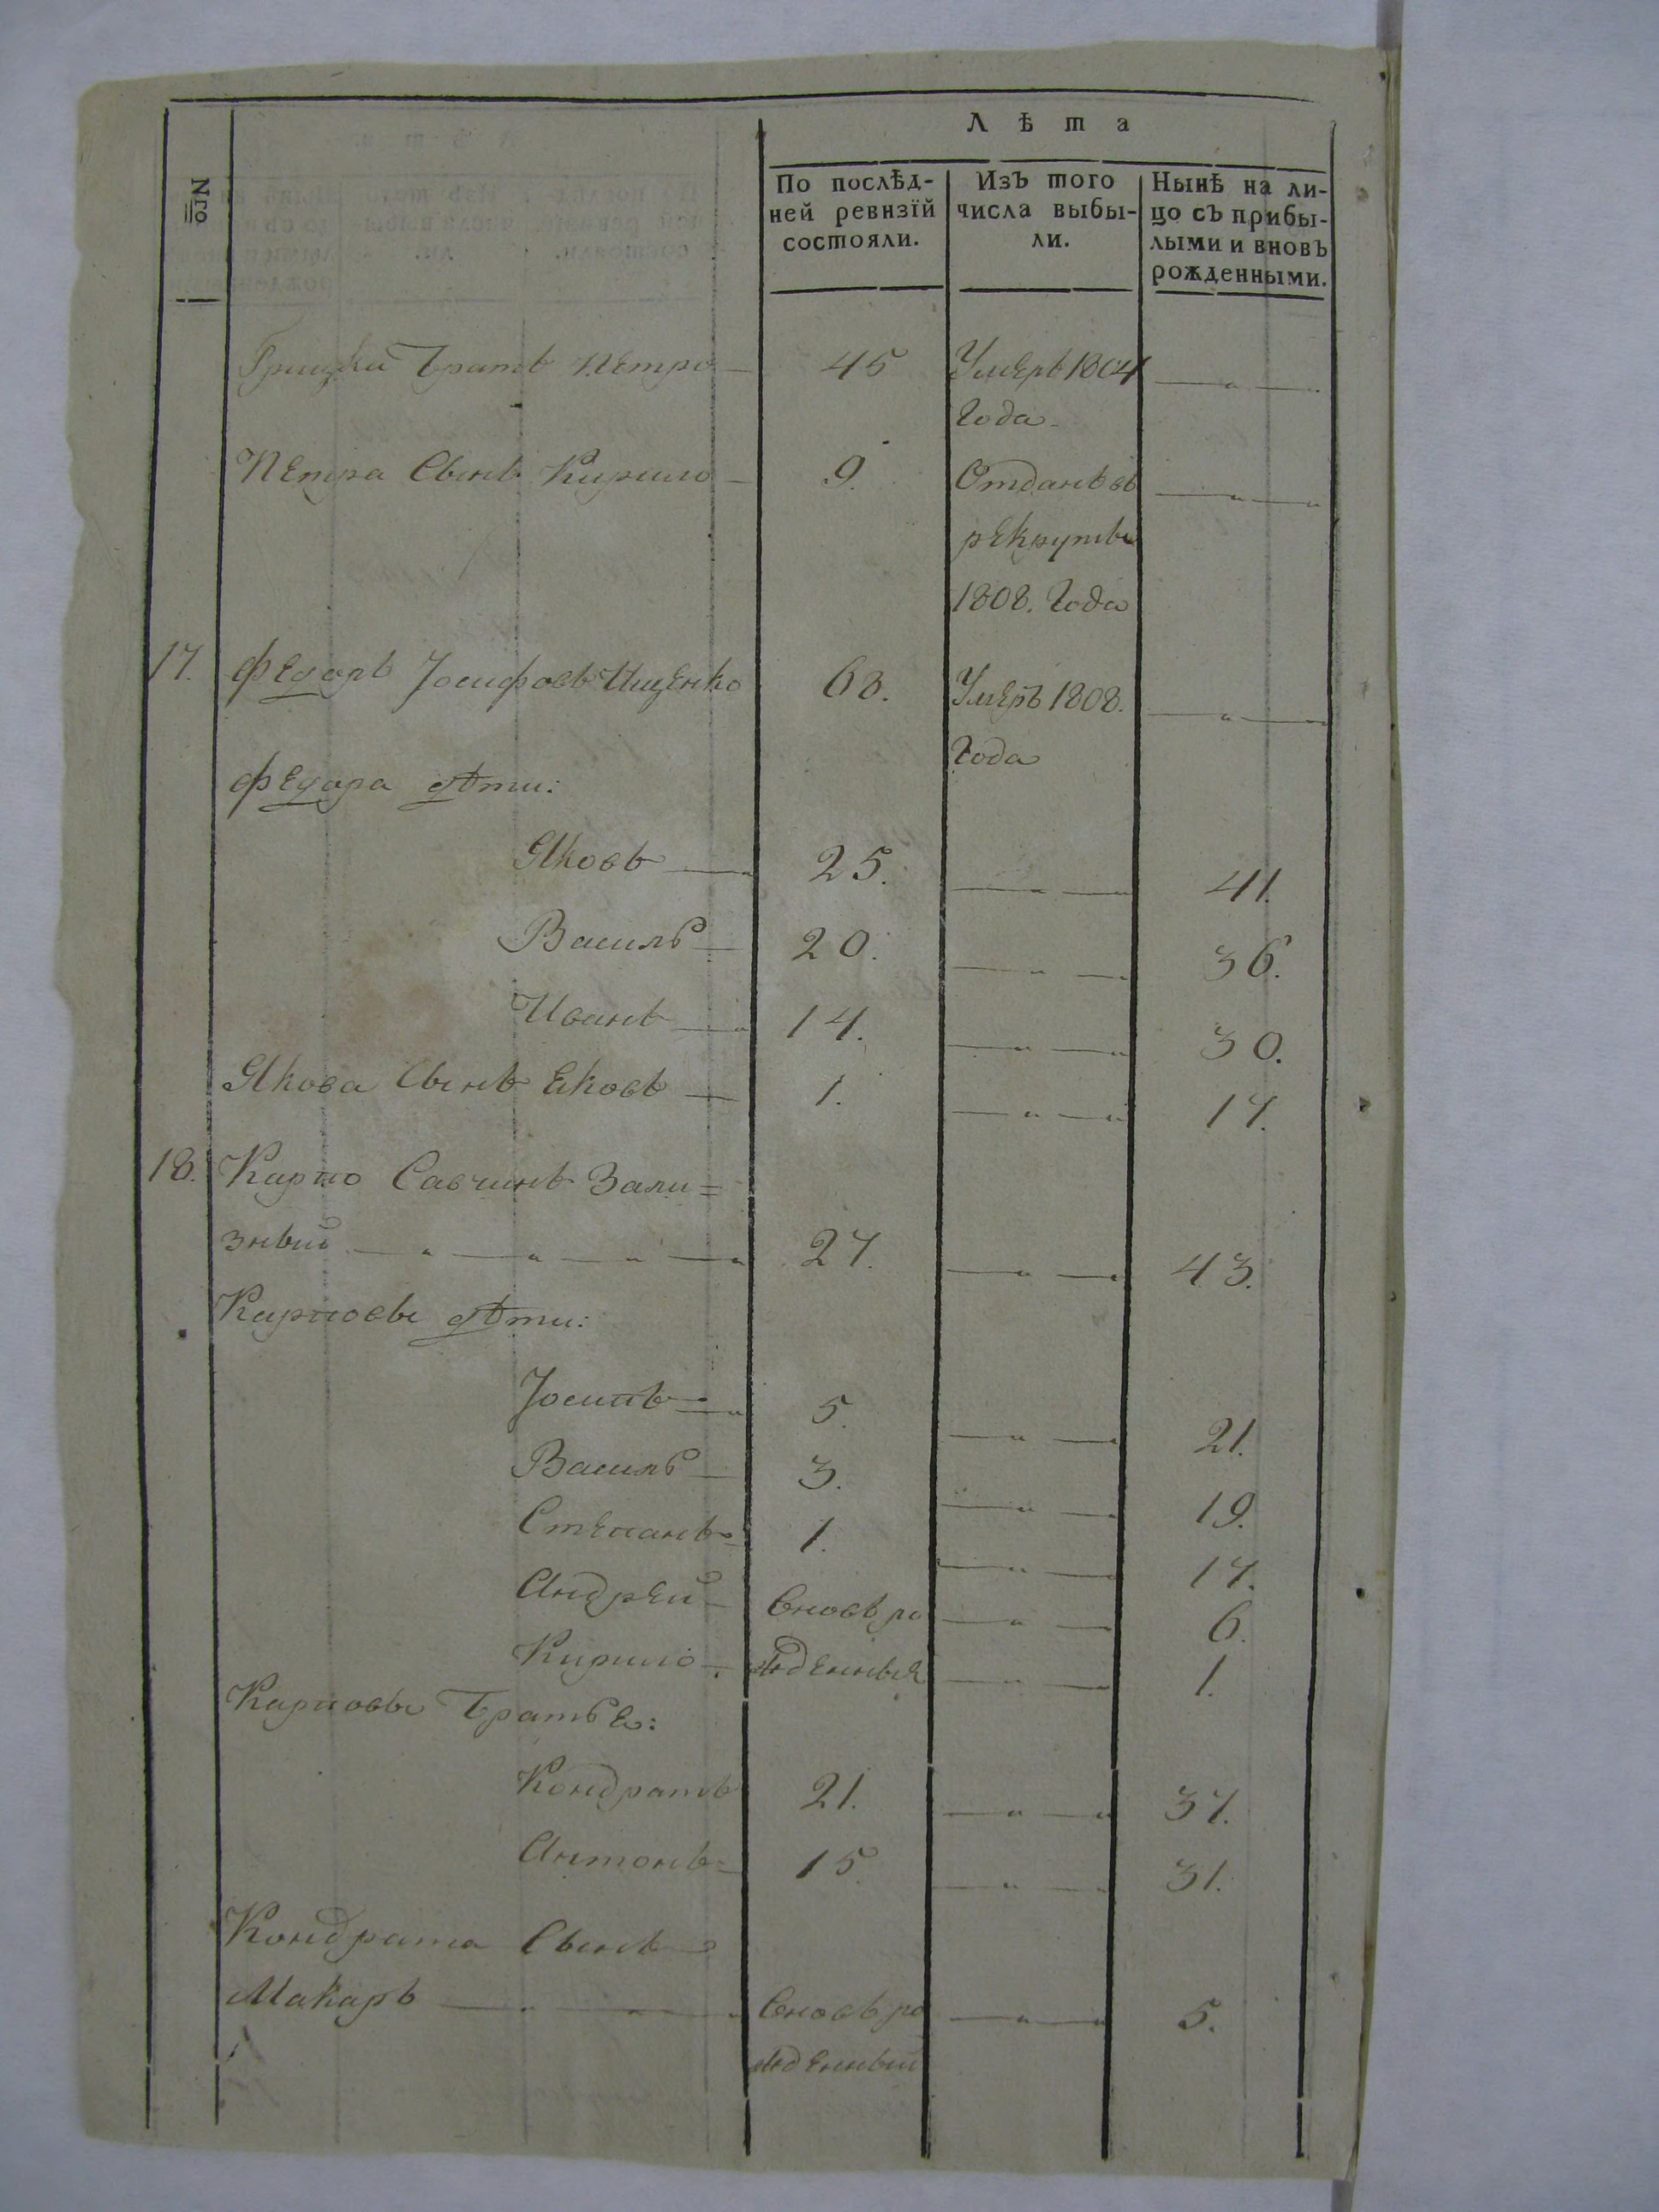 Лѣта
Nго.
По послѣд-
ней ревизїй
состояли.
Изъ того
числа выбы-
ли.
Нынѣ на ли-
цо съ прибы-
лыми и вновь
рожденными.
Грицка братъ Петро 45 Умеръ 1804
года.
Петра сынъ Кирило 9. Отданъ въ
рекруты
1808. года
17. Федоръ Іосифовъ Ищенко 63. Умеръ 1808.
года
Федора дѣти:
Яковъ 25. 41.
Василь 20. 36.
Иванъ 14. 30.
Якова сынъ Яковъ 1. 17.
18. Карпо Савчинъ Зали=
зный 27. 43.
Карповы дѣти:
Іосипъ 5. 21.
Василь 3. 19.
Степанъ 1. 17.
Андрей вновь ро 6.
Кирило жденныя 1.
Карповы братья:
Кондратъ 21. 37.
Антонъ 15. 31.
Кондрата сынъ
Макаръ вновь ро 5.
жденный